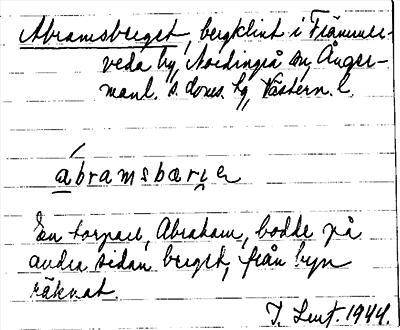 Abramsberget, bergklint i Främmer-
veda by, Nordingrå sn, Ånger-
manl. s. doms. hg, Västern. l.
ábramsbærje
En torpare, Abraham, bodde på
andra sidan berget, från byn
räknat.
1944.